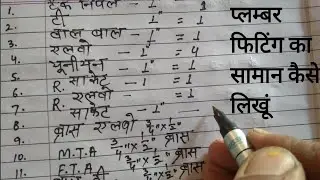 1. टैंक निपल - 1" 1
2. टी - 1" = 1
3. बाल बाल - 1" = 1
4. एलवो - 1" = 4
5. यूनीयन - 1" = 1
6. R. साकेट - 1 = 1
7. R. एलवो - = 1
8. साकेट - 1" -
9. ब्रास एलवो 3/4" x 1/2"
10. M.T.A 3/4" x 1/2" ब्रास
11. F.T.A 3/4" x 1/2" ब्रास
प्लम्बर
फिटिंग का
सामान कैसे
लिखूं